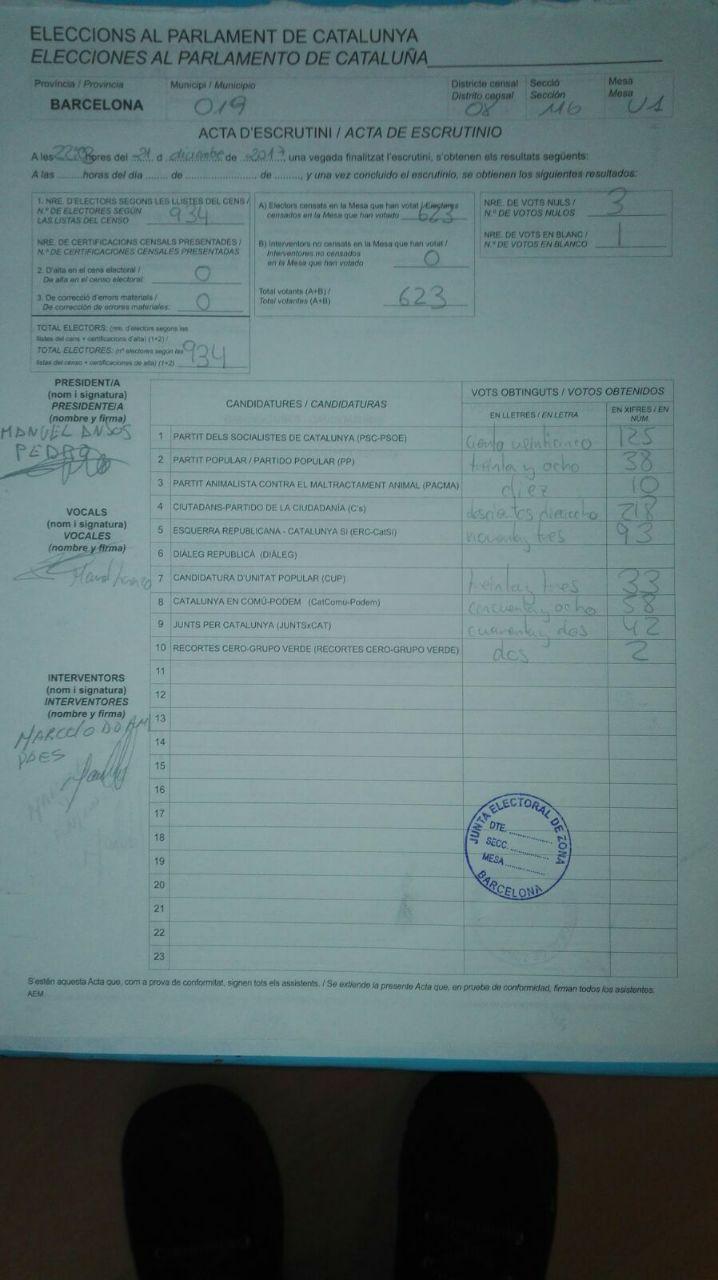 ELECCIONS AL PARLAMENT DE CATALUNYA
ELECCIONES AL PARLAMENTO DE CATALUÑA
Província / Provincia
BARCELONA
Municipi / Municipio
019
Districte censal
Distrito censal
08
Secció
Sección
116
Mesa
Mesa
U1
ACTA D'ESCRUTINI / ACTA DE ESCRUTINIO
A les 22:08 hores del 21 d diciembre de 2017, una vegada finalitzat l'escrutini, s'obtenen els resultats següents:
A las ........ horas del día ........ de ........ de ........, y una vez concluido el escrutinio, se obtienen los siguientes resultados:
1. NRE. D'ELECTORS SEGONS LES LLISTES DEL CENS /
N.º DE ELECTORES SEGÚN
LAS LISTAS DEL CENSO 934
NRE. DE CERTIFICACIONS CENSALS PRESENTADES /
N.º DE CERTIFICACIONES CENSALES PRESENTADAS
2. D'alta en el cens electoral /
De alta en el censo electoral: 0
3. De correcció d'errors materials /
De corrección de errores materiales: 0
TOTAL ELECTORS: (nre. d'electors segons les
llistes del cens + certificacions d'alta) (1+2) /
TOTAL ELECTORES: (nº electores según las
listas del censo + certificaciones de alta) (1+2) 934
A) Electors censats en la Mesa que han votat / Electores
censados en la Mesa que han votado 623
B) Interventors no censats en la Mesa que han votat /
Interventores no censados
en la Mesa que han votado 0
Total votants (A+B) /
Total votantes (A+B) 623
NRE. DE VOTS NULS /
N.º DE VOTOS NULOS 3
NRE. DE VOTS EN BLANC /
N.º DE VOTOS EN BLANCO 1
PRESIDENT/A
(nom i signatura)
PRESIDENTE/A
(nombre y firma)
MANUEL
PEDRO
VOCALS
(nom i signatura)
VOCALES
(nombre y firma)
INTERVENTORS
(nom i signatura)
INTERVENTORES
(nombre y firma)
CANDIDATURES / CANDIDATURAS
VOTS OBTINGUTS / VOTOS OBTENIDOS
EN LLETRES / EN LETRA
EN XIFRES / EN NÚM.
1 PARTIT DELS SOCIALISTES DE CATALUNYA (PSC-PSOE) ciento veinticinco 125
2 PARTIT POPULAR / PARTIDO POPULAR (PP) treinta y ocho 38
3 PARTIT ANIMALISTA CONTRA EL MALTRACTAMENT ANIMAL (PACMA) diez 10
4 CIUTADANS-PARTIDO DE LA CIUDADANÍA (C's) doscientos dieciocho 218
5 ESQUERRA REPUBLICANA - CATALUNYA SÍ (ERC-CatSí) noventa y tres 93
6 DIÀLEG REPUBLICÀ (DIÀLEG)
7 CANDIDATURA D'UNITAT POPULAR (CUP) treinta y tres 33
8 CATALUNYA EN COMÚ-PODEM (CatComú-Podem) cincuenta y ocho 58
9 JUNTS PER CATALUNYA (JUNTSxCAT) cuarenta y dos 42
10 RECORTES CERO-GRUPO VERDE (RECORTES CERO-GRUPO VERDE) dos 2
11
12
13
14
15
16
17
18
19
20
21
22
23
JUNTA ELECTORAL DE ZONA
DTE.
SECC.
MESA
BARCELONA
S'estén aquesta Acta que, com a prova de conformitat, signen tots els assistents. / Se extiende la presente Acta que, en prueba de conformidad, firman todos los asistentes.
AEM